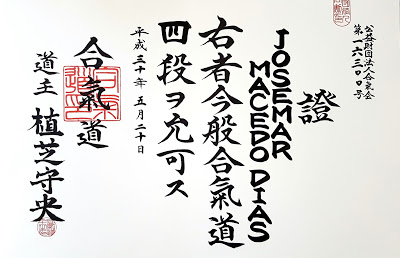 公益財団法人合氣会
第一六三〇〇号
證
JOSEMAR
MACEDO DIAS
右者今般合氣道
四段ヲ允可ス
平成三十年 五月二十日
合氣道
道主 植芝守央